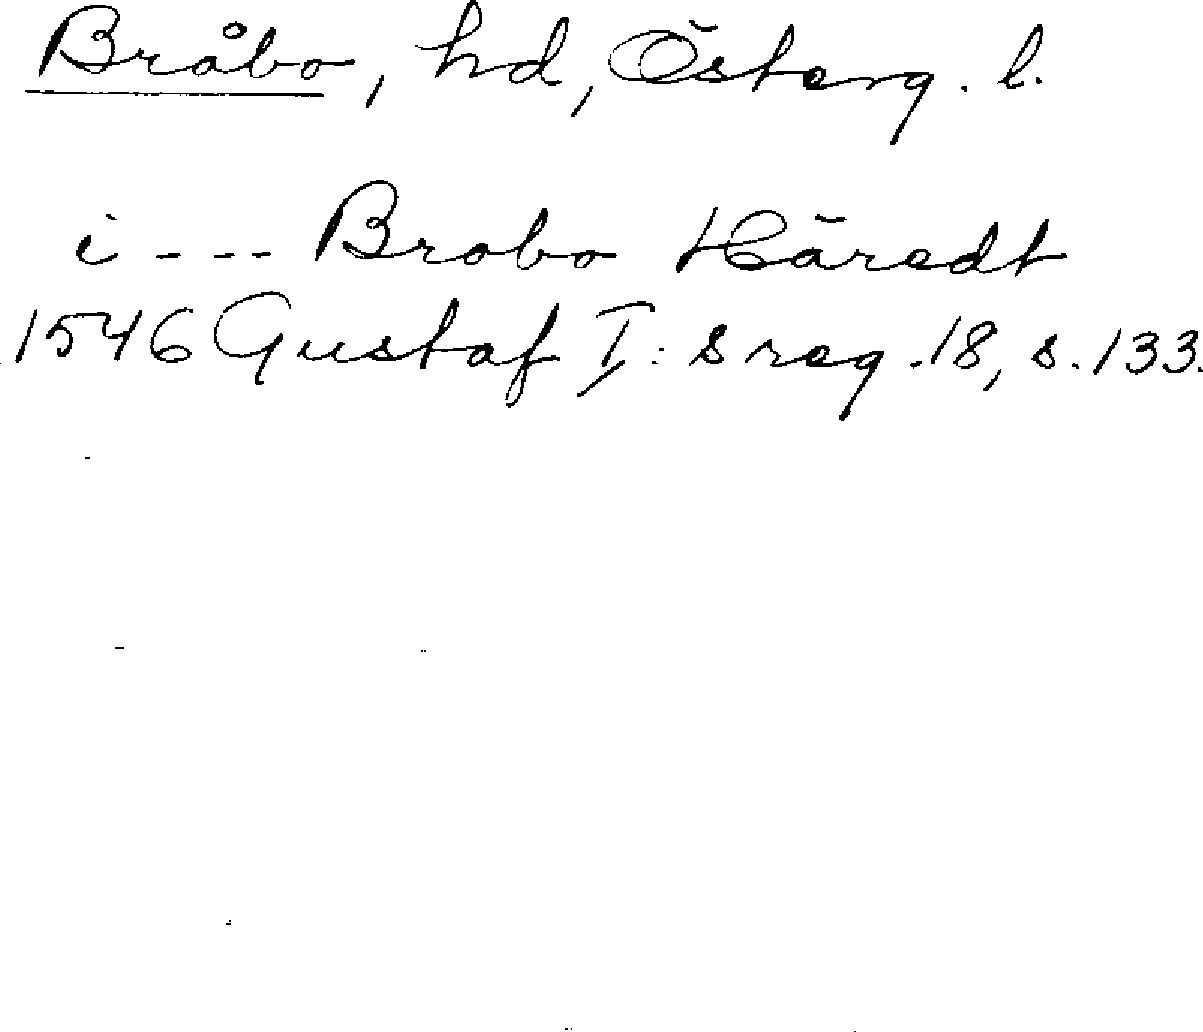 Bråbo, hd, Österg. l.
i --- Brobo Häredt
1546 Gustaf I:s reg. 18, s. 133.